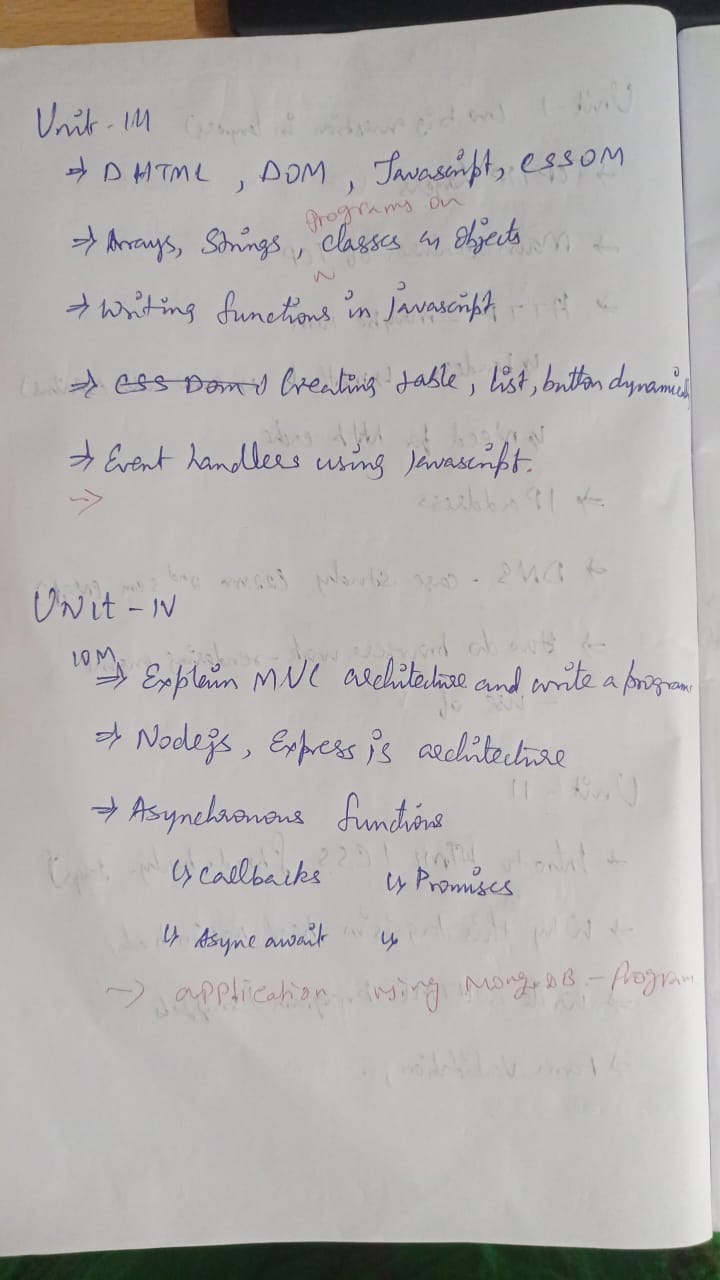 Unit - III
⇒ DHTML, DOM, Javascript, CSSOM
programs on
⇒ Arrays, Strings, classes in objects
⇒ Writing functions in Javascript
⇒ CSS Dom Creating table, list, button dynamica
⇒ Event handlers using Javascript.
→
UNit - IV
10M
⇒ Explain MVC architecture and write a program
⇒ Nodejs, Express js architecture
⇒ Asynchronous functions
↳ Callbacks ↳ Promises
↳ Async await ↳
→ application using MongoDB - Program